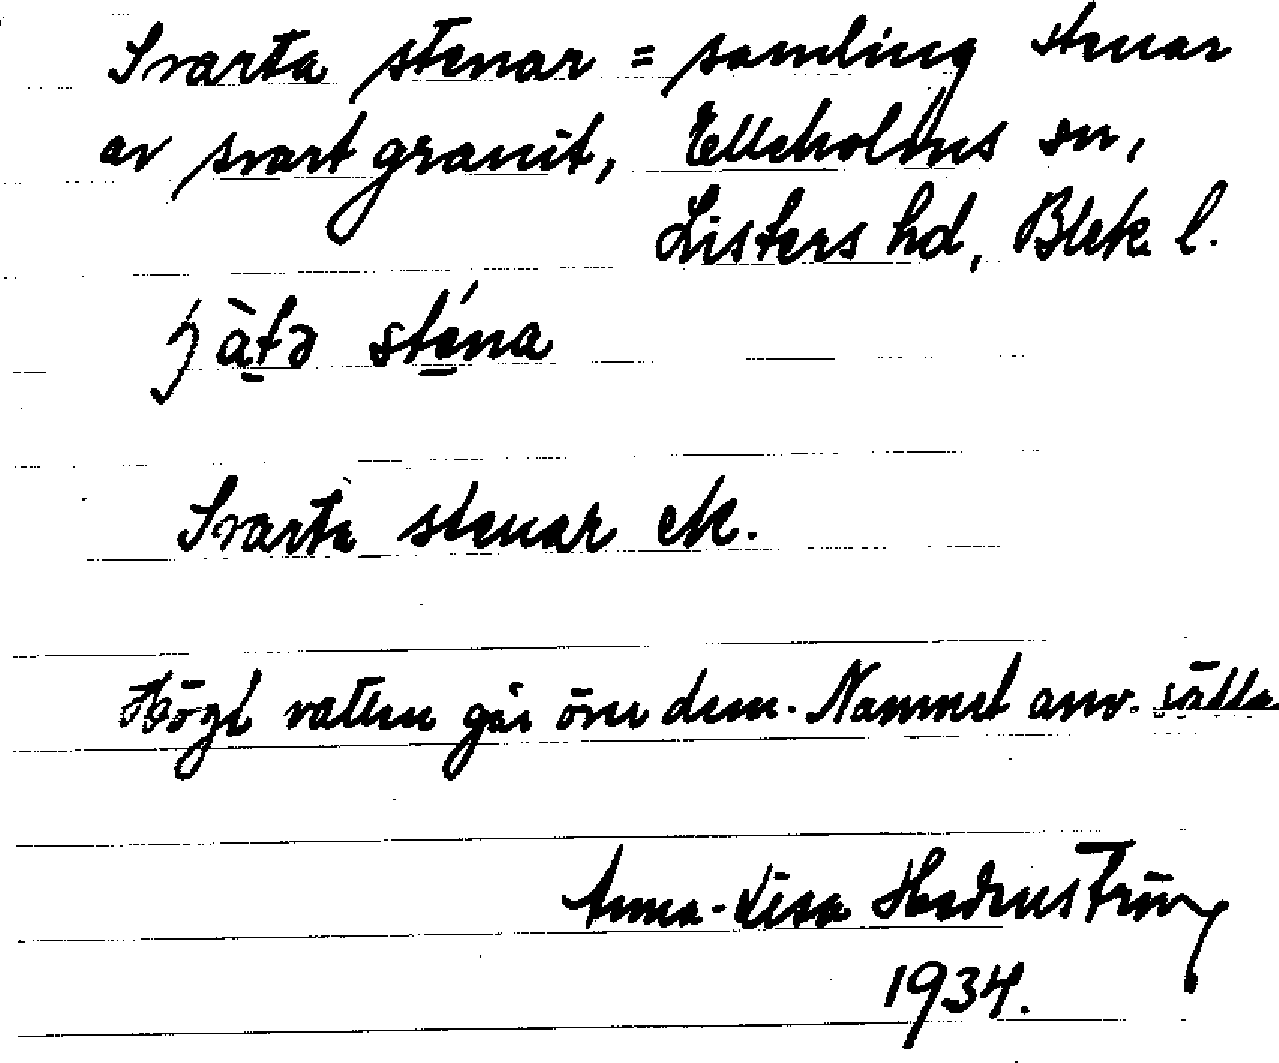 Svarta stenar = samling stenar
av svart granit, Elleholms sn,
Listers hd, Blek. l.
stena
Svarta stenar ek.
Högt vatten går över dem. Namnet anv. sälla
Anna-Lisa
1934.